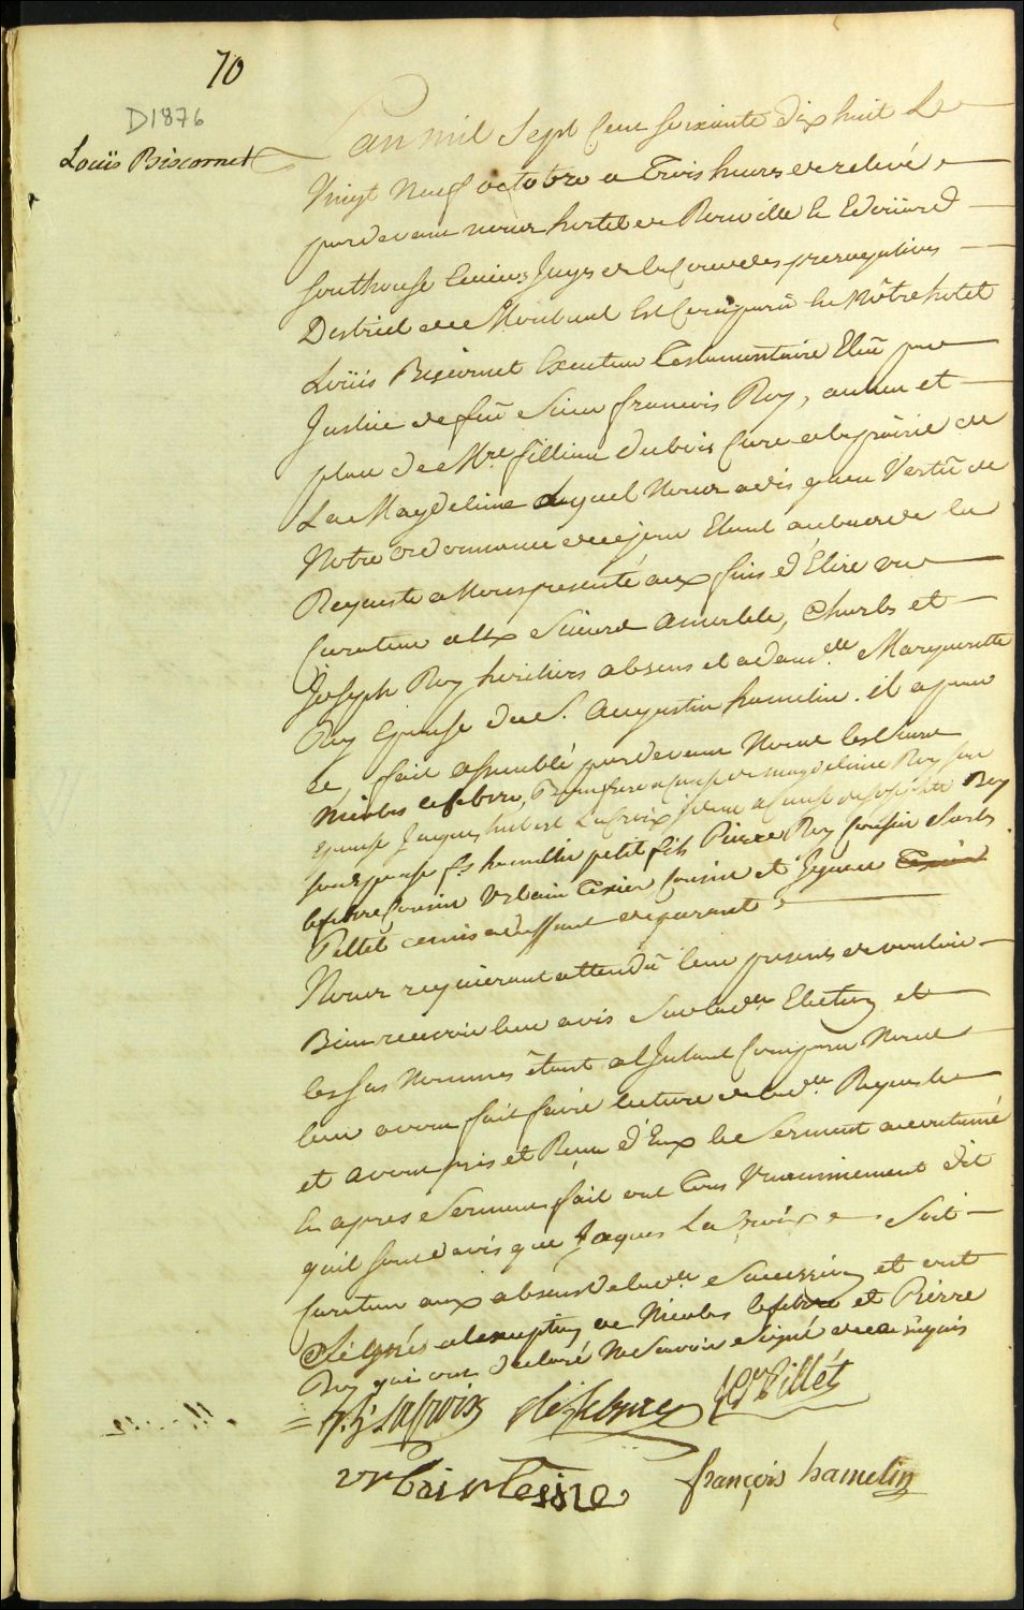 70
D1876
Louis Biscornet
L'an mil Sept Cent Soixante dix huit Le
Vingt Neuf octobre a Trois heures de relevé
pardevant nous hertel de Rouville & Edoüard
Southouse Ecuiers Juges de la Cour des prerogatives
District de Montreal Est Comparu En Nôtre hotel
Loüis Biscornet Executeur Testamentaire Elû par
Justice de feu Sieur francois Roy, au lieu et
place de Mre filliau dubois Cure de la paroisse de
La Magdeleine Lequel Nous a dis qu'en Vertû de
Notre ordonnance de ce jour Etant au bas de la
Requeste a Nous presenté aux fins d'Elire un
Curateur aux Sieurs Amable, Charles et
Joseph Roy heritiers absens et a dam.lle Marguerite
Roy Epouse du S. Augustin hamelin. il a pour
ce, fait assemblé pardevant Nous les Sieurs
Nicolas lefebvre, Beaufrere a cause de magdeleine Roy son
Epouse Jacques hubert Lacroix idem a cause de Roy
son Epouse fs hamelin petit fils Pierre Roy Cousin Charles
lefebvre Cousin Urbain Texier Cousin et Ignace Texier
Pillet amis a deffaut de parents
Nous requierant attendû leur presence de vouloir
Bien recevoir leur avis Sur lad.te Election et
les Sus Nommés êtant a l'Instant Comparu Nous
leur avons fait faire lecture de lad.te Requeste
et avons pris et Recu d'Eux le Serment accoutumé
Et apres Serment fait ont Tous Unanimement dit
quil sont d'avis que Jacques La Croix Soit
Curateur aux absens de lad.te Succession et ont
Signés a l'exception de Nicolas lefebvre et Pierre
Roy qui ont declaré Ne Savoir Signé de ce enquis
Lacroix lefebvre Pillét
urbain Tesire françois hamelin